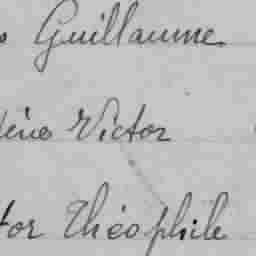 Guillaume
Victor
tor Théophile